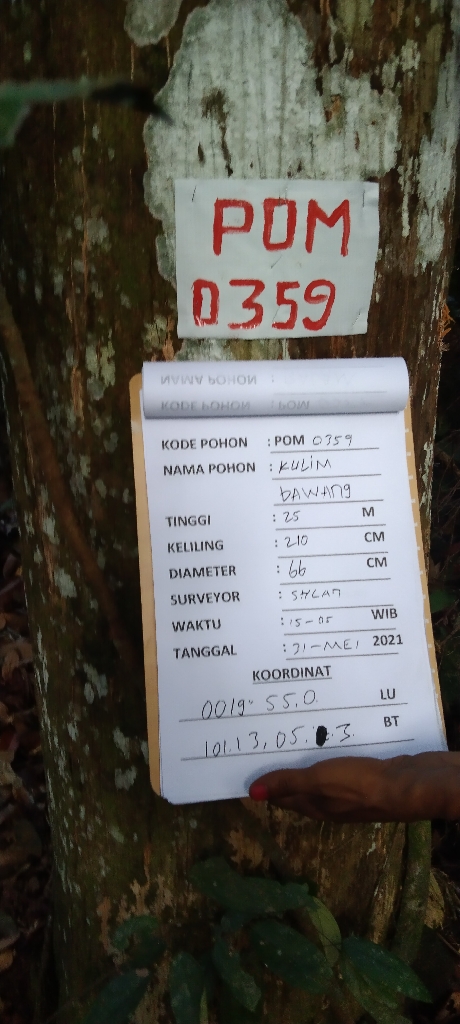 POM
0359
KODE POHON : POM 0359
NAMA POHON : KULIM
bAWANG
TINGGI : 25 M
KELILING : 210 CM
DIAMETER : 66 CM
SURVEYOR :
WAKTU : 15-05 WIB
TANGGAL : 31-MEI 2021
KOORDINAT
0019" 55.0 LU
101.13, 05. 3. BT